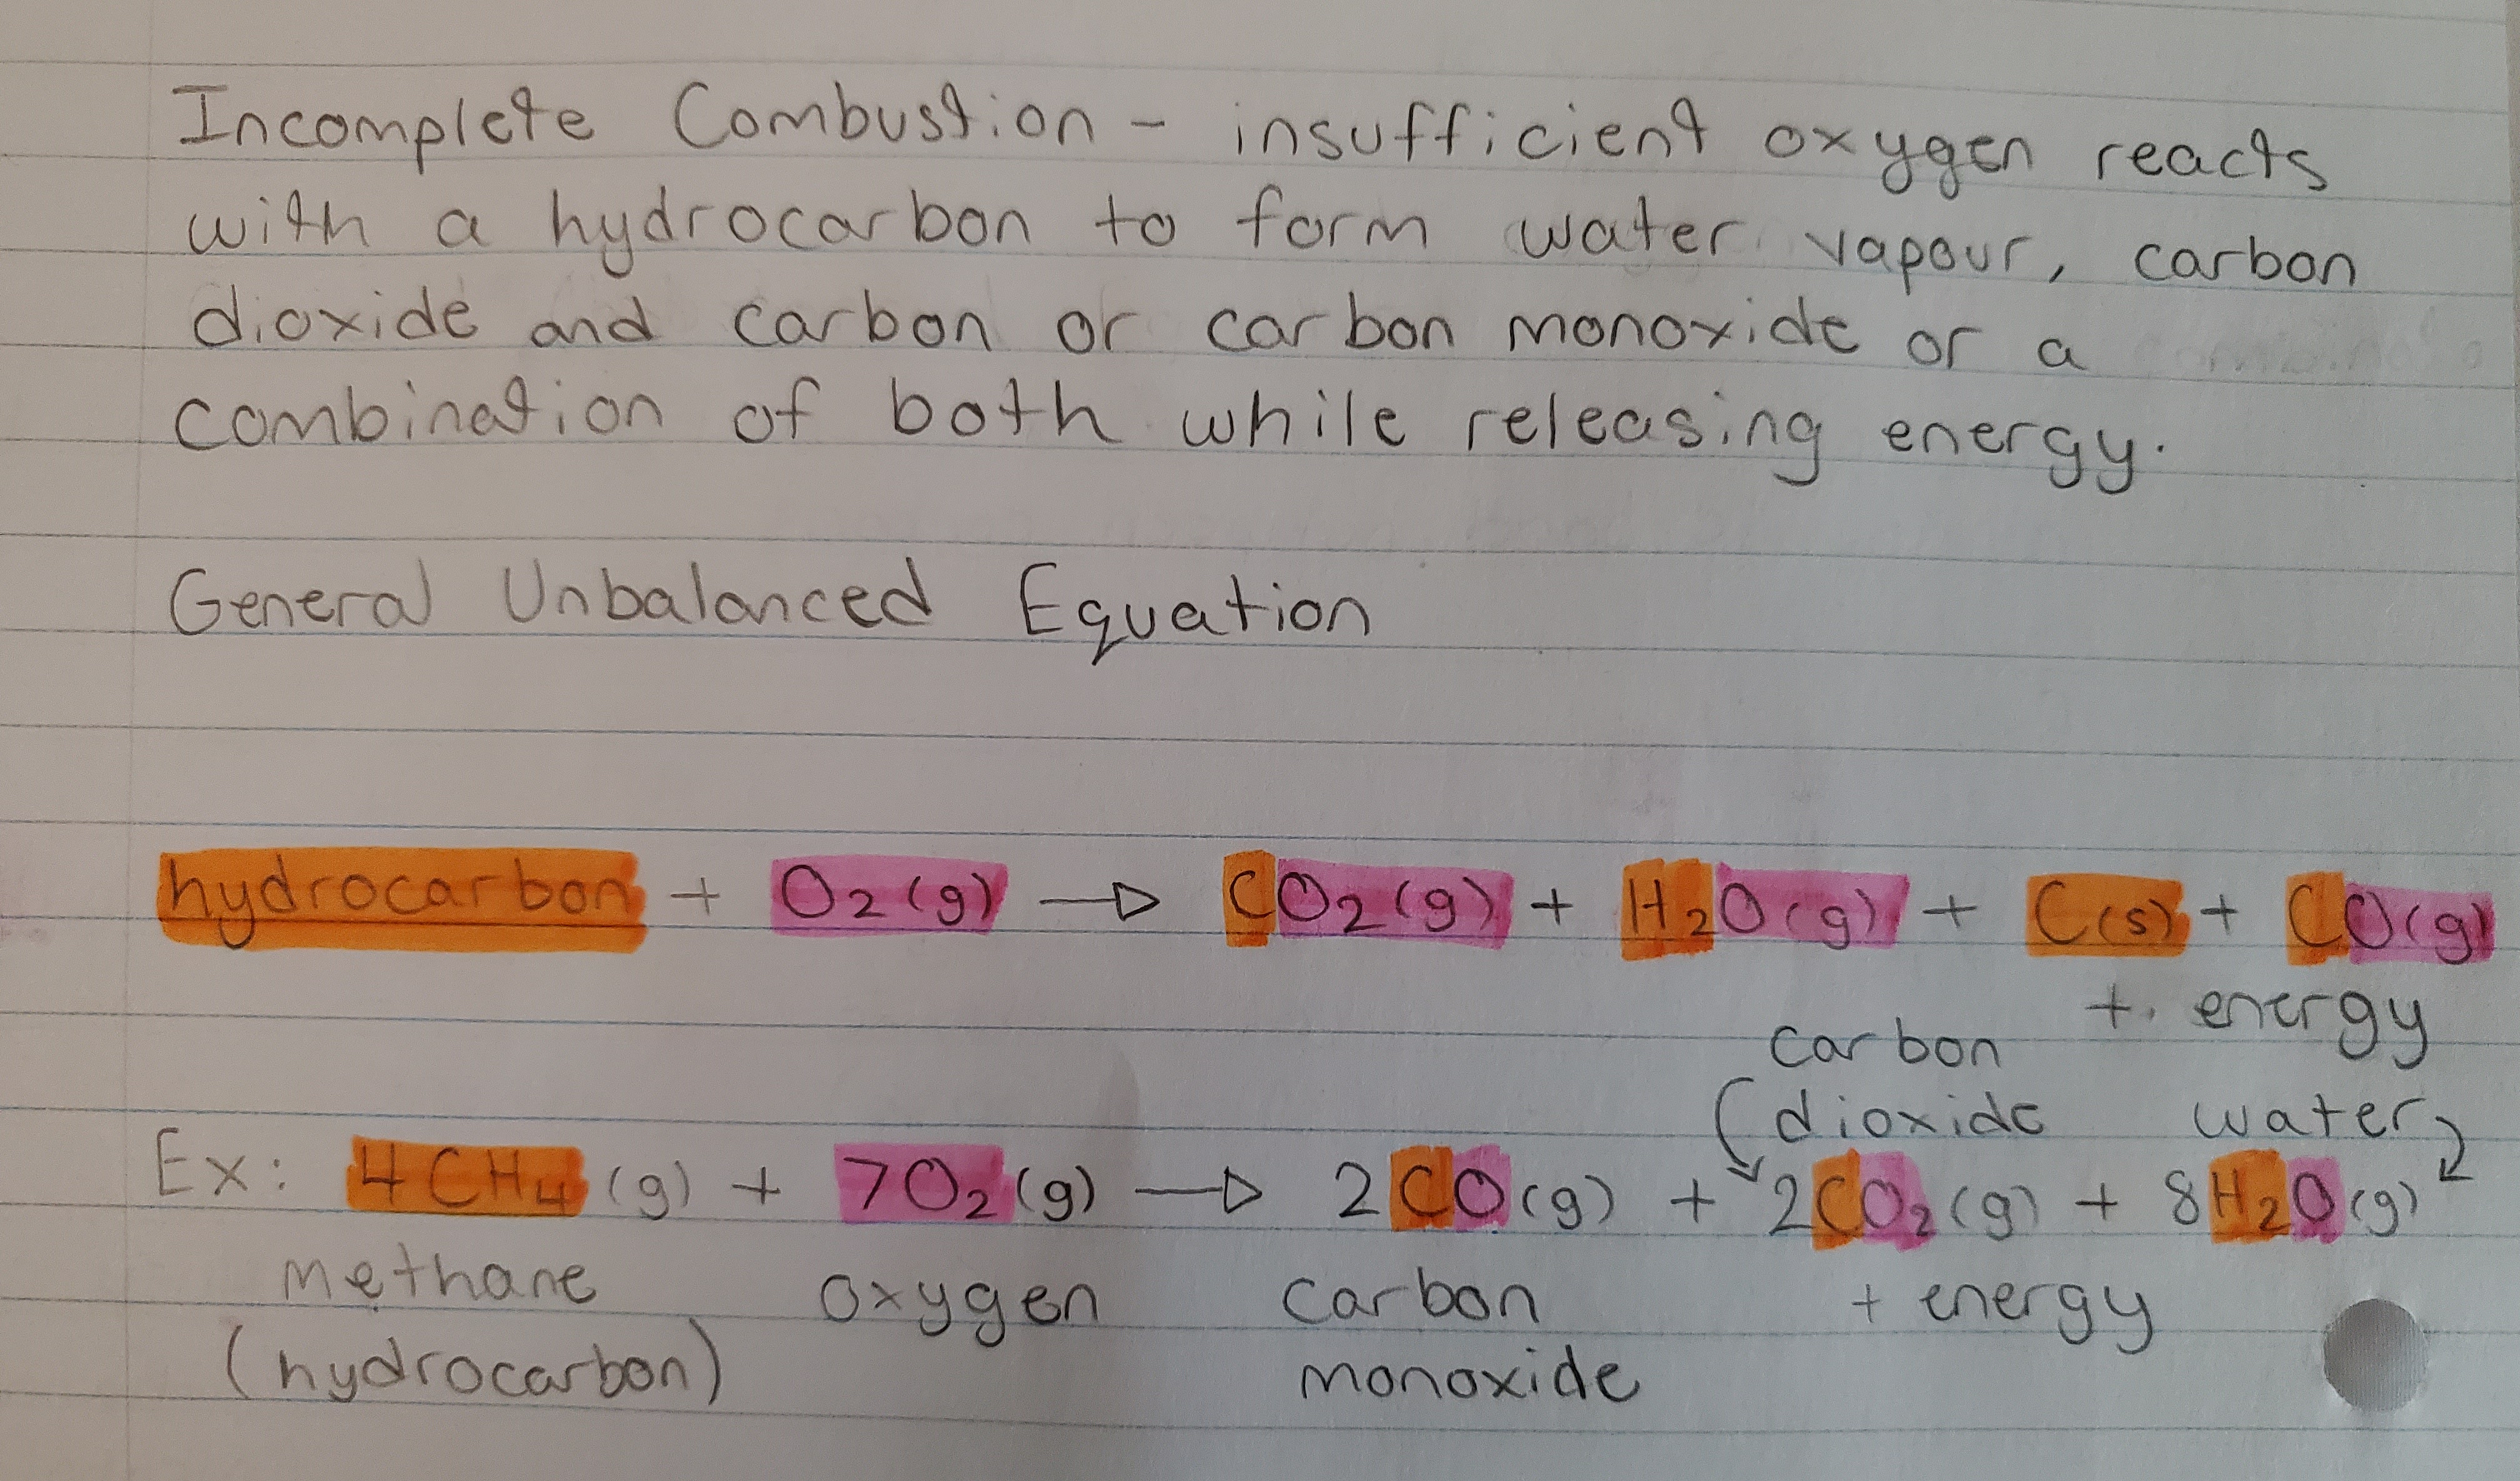 Incomplete Combustion - insufficient oxygen reacts
with a hydrocarbon to form water vapour, carbon
dioxide and carbon or carbon monoxide or a
combination of both while releasing energy.
General Unbalanced Equation
hydrocarbon + O₂(g) → CO₂(g) + H₂O(g) + C(s) + CO(g)
+ energy
carbon
dioxide water
Ex: 4CH₄(g) + 7O₂(g) → 2CO(g) + 2CO₂(g) + 8H₂O(g)
methane oxygen carbon + energy
(hydrocarbon) monoxide